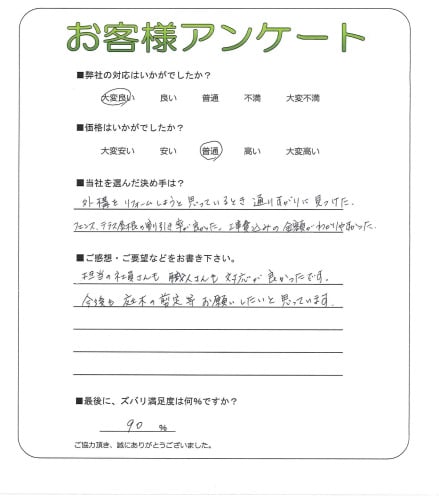 お客様アンケート
■弊社の対応はいかがでしたか？
大変良い 良い 普通 不満 大変不満
■価格はいかがでしたか？
大変安い 安い 普通 高い 大変高い
■当社を選んだ決め手は？
外構をリフォームしようと思っているとき通りすがりに見つけた。
フェンス、テラス屋根の割引き率が良かった。工事費込みの金額がわかりやすかった。
■ご感想・ご要望などをお書き下さい。
担当の社員さんも職人さんも対応が良かったです。
今後も庭木の剪定等お願いしたいと思っています。
■最後に、ズバリ満足度は何%ですか？
90 %
ご協力頂き、誠にありがとうございました。